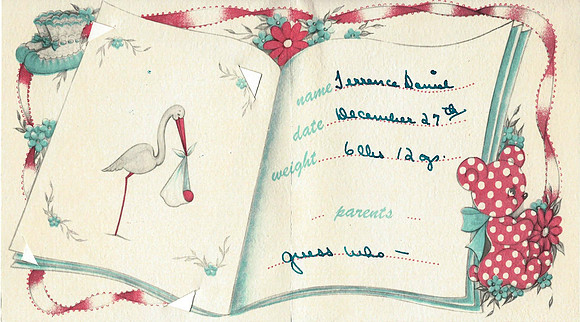 name Terrence Daniel
date December 27th
weight 6 lbs 12 ozs.
parents
guess who —